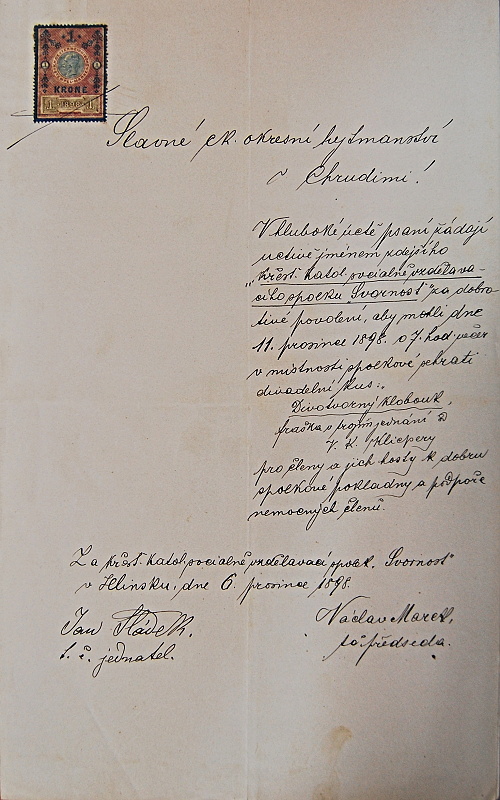 1
KRONE
1 1898 1
Slavné ck. okresní hejtmanství
v Chrudimi!
V hluboké úctě psaní žádají
uctivě jménem zdejšího
„křest. katol. sociálně vzdělava-
cího spolku „Svornost" za dobro-
tivé povolení, aby mohli dne
11. prosince 1898 o 7. hod. večer
v místnosti spolkové sehrati
divadelní kus:
Divotvorný klobouk,
fraška v trojím jednání od
V. K. Klicpery
pro členy a jich hosty k dobru
spolkové pokladny a podpoře
nemocných členů.
Za křest. katol. sociálně vzdělavací spolek „Svornost"
v Hlinsku, dne 6. prosince 1898.
Jan Sládek. Václav Marek,
t. č. jednatel. předseda.